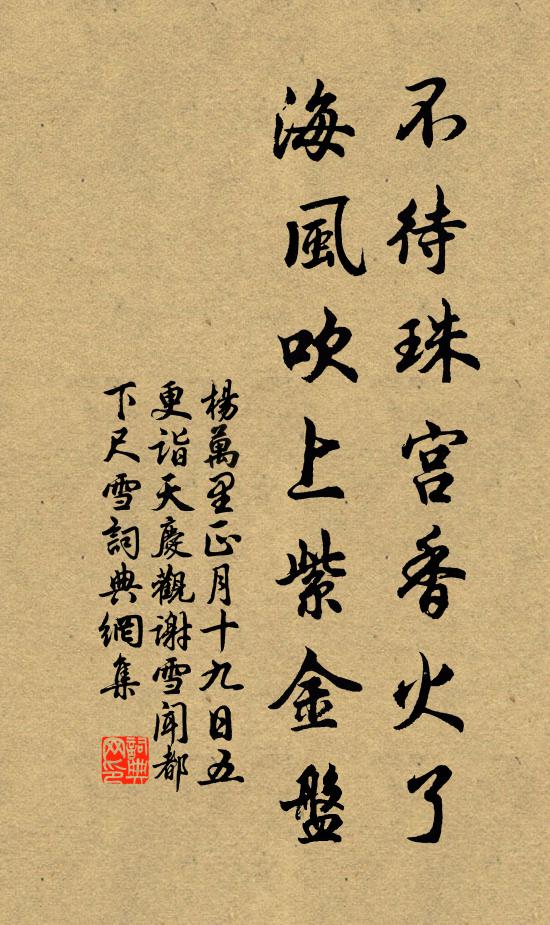 不待珠宮香火了
海風吹上紫金盤
楊萬里正月十九日五
更詣天慶觀謝雪聞都
下尺雪詞典網集
詞典
网印